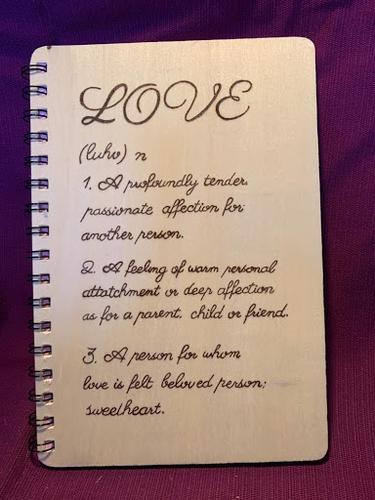 LOVE
(luhv) n
1. A profoundly tender,
passionate affection for
another person.
2. A feeling of warm personal
attatchment or deep affection
as for a parent, child or friend.
3. A person for whom
love is felt beloved person;
sweetheart.